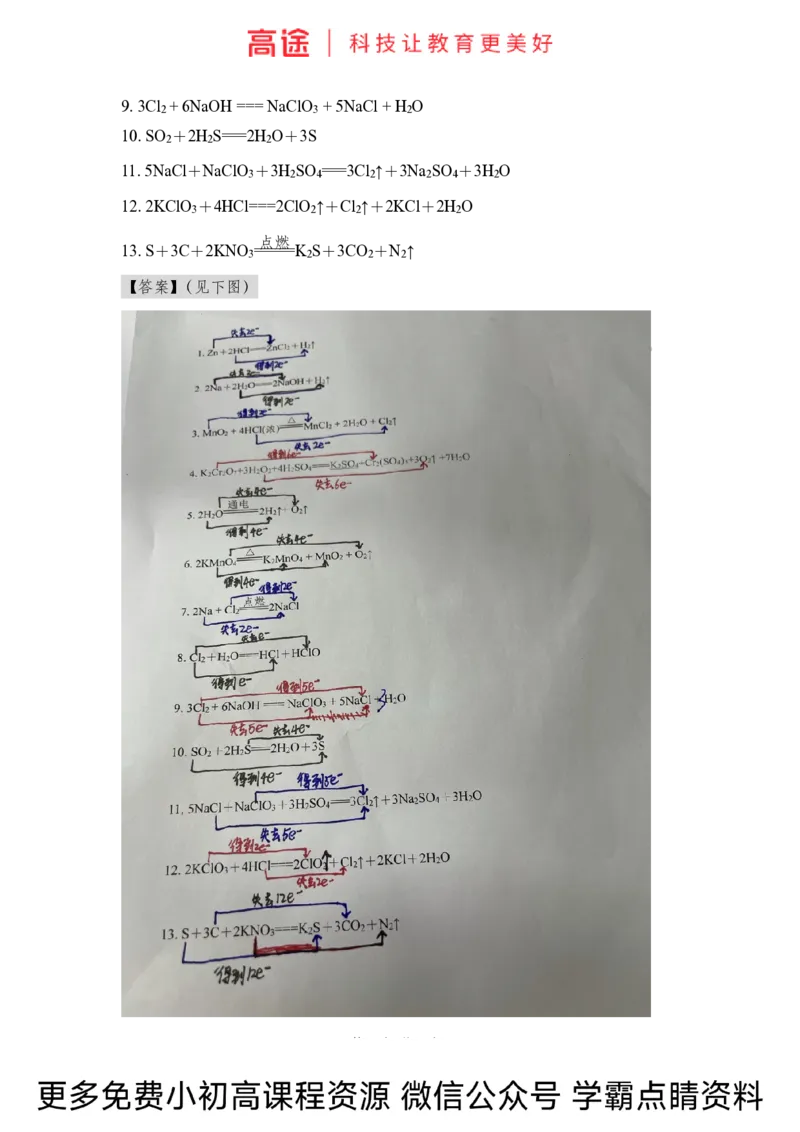 高途 | 科技让教育更美好
9. 3Cl₂ + 6NaOH === NaClO₃ + 5NaCl + H₂O
10. SO₂+2H₂S===2H₂O+3S
11. 5NaCl+NaClO₃+3H₂SO₄===3Cl₂↑+3Na₂SO₄+3H₂O
12. 2KClO₃+4HCl===2ClO₂↑+Cl₂↑+2KCl+2H₂O
点燃
13. S+3C+2KNO₃=====K₂S+3CO₂+N₂↑
【答案】(见下图)
失去2e⁻
1. Zn+2HCl══ZnCl₂+H₂↑
得到2e⁻
失去2e⁻
2. 2Na+2H₂O══2NaOH+H₂↑
得到2e⁻
得到2e⁻
△
3. MnO₂+4HCl(浓)══MnCl₂+2H₂O+Cl₂↑
失去2e⁻
得到6e⁻
4. K₂Cr₂O₇+3H₂O₂+4H₂SO₄══K₂SO₄+Cr₂(SO₄)₃+3O₂↑+7H₂O
失去6e⁻
失去4e⁻
通电
5. 2H₂O══2H₂↑+O₂↑
得到4e⁻
失去4e⁻
△
6. 2KMnO₄══K₂MnO₄+MnO₂+O₂↑
得到4e⁻
得到2e⁻
点燃
7. 2Na+Cl₂══2NaCl
失去2e⁻
失去e⁻
8. Cl₂+H₂O══HCl+HClO
得到e⁻
得到5e⁻
9. 3Cl₂+6NaOH══NaClO₃+5NaCl+3H₂O
失去5e⁻
失去4e⁻
10. SO₂+2H₂S══2H₂O+3S
得到4e⁻
得到5e⁻
11. 5NaCl+NaClO₃+3H₂SO₄══3Cl₂↑+3Na₂SO₄+3H₂O
失去5e⁻
得到2e⁻
12. 2KClO₃+4HCl══2ClO₂↑+Cl₂↑+2KCl+2H₂O
失去2e⁻
失去12e⁻
13. S+3C+2KNO₃══K₂S+3CO₂+N₂↑
得到12e⁻
更多免费小初高课程资源 微信公众号 学霸点睛资料